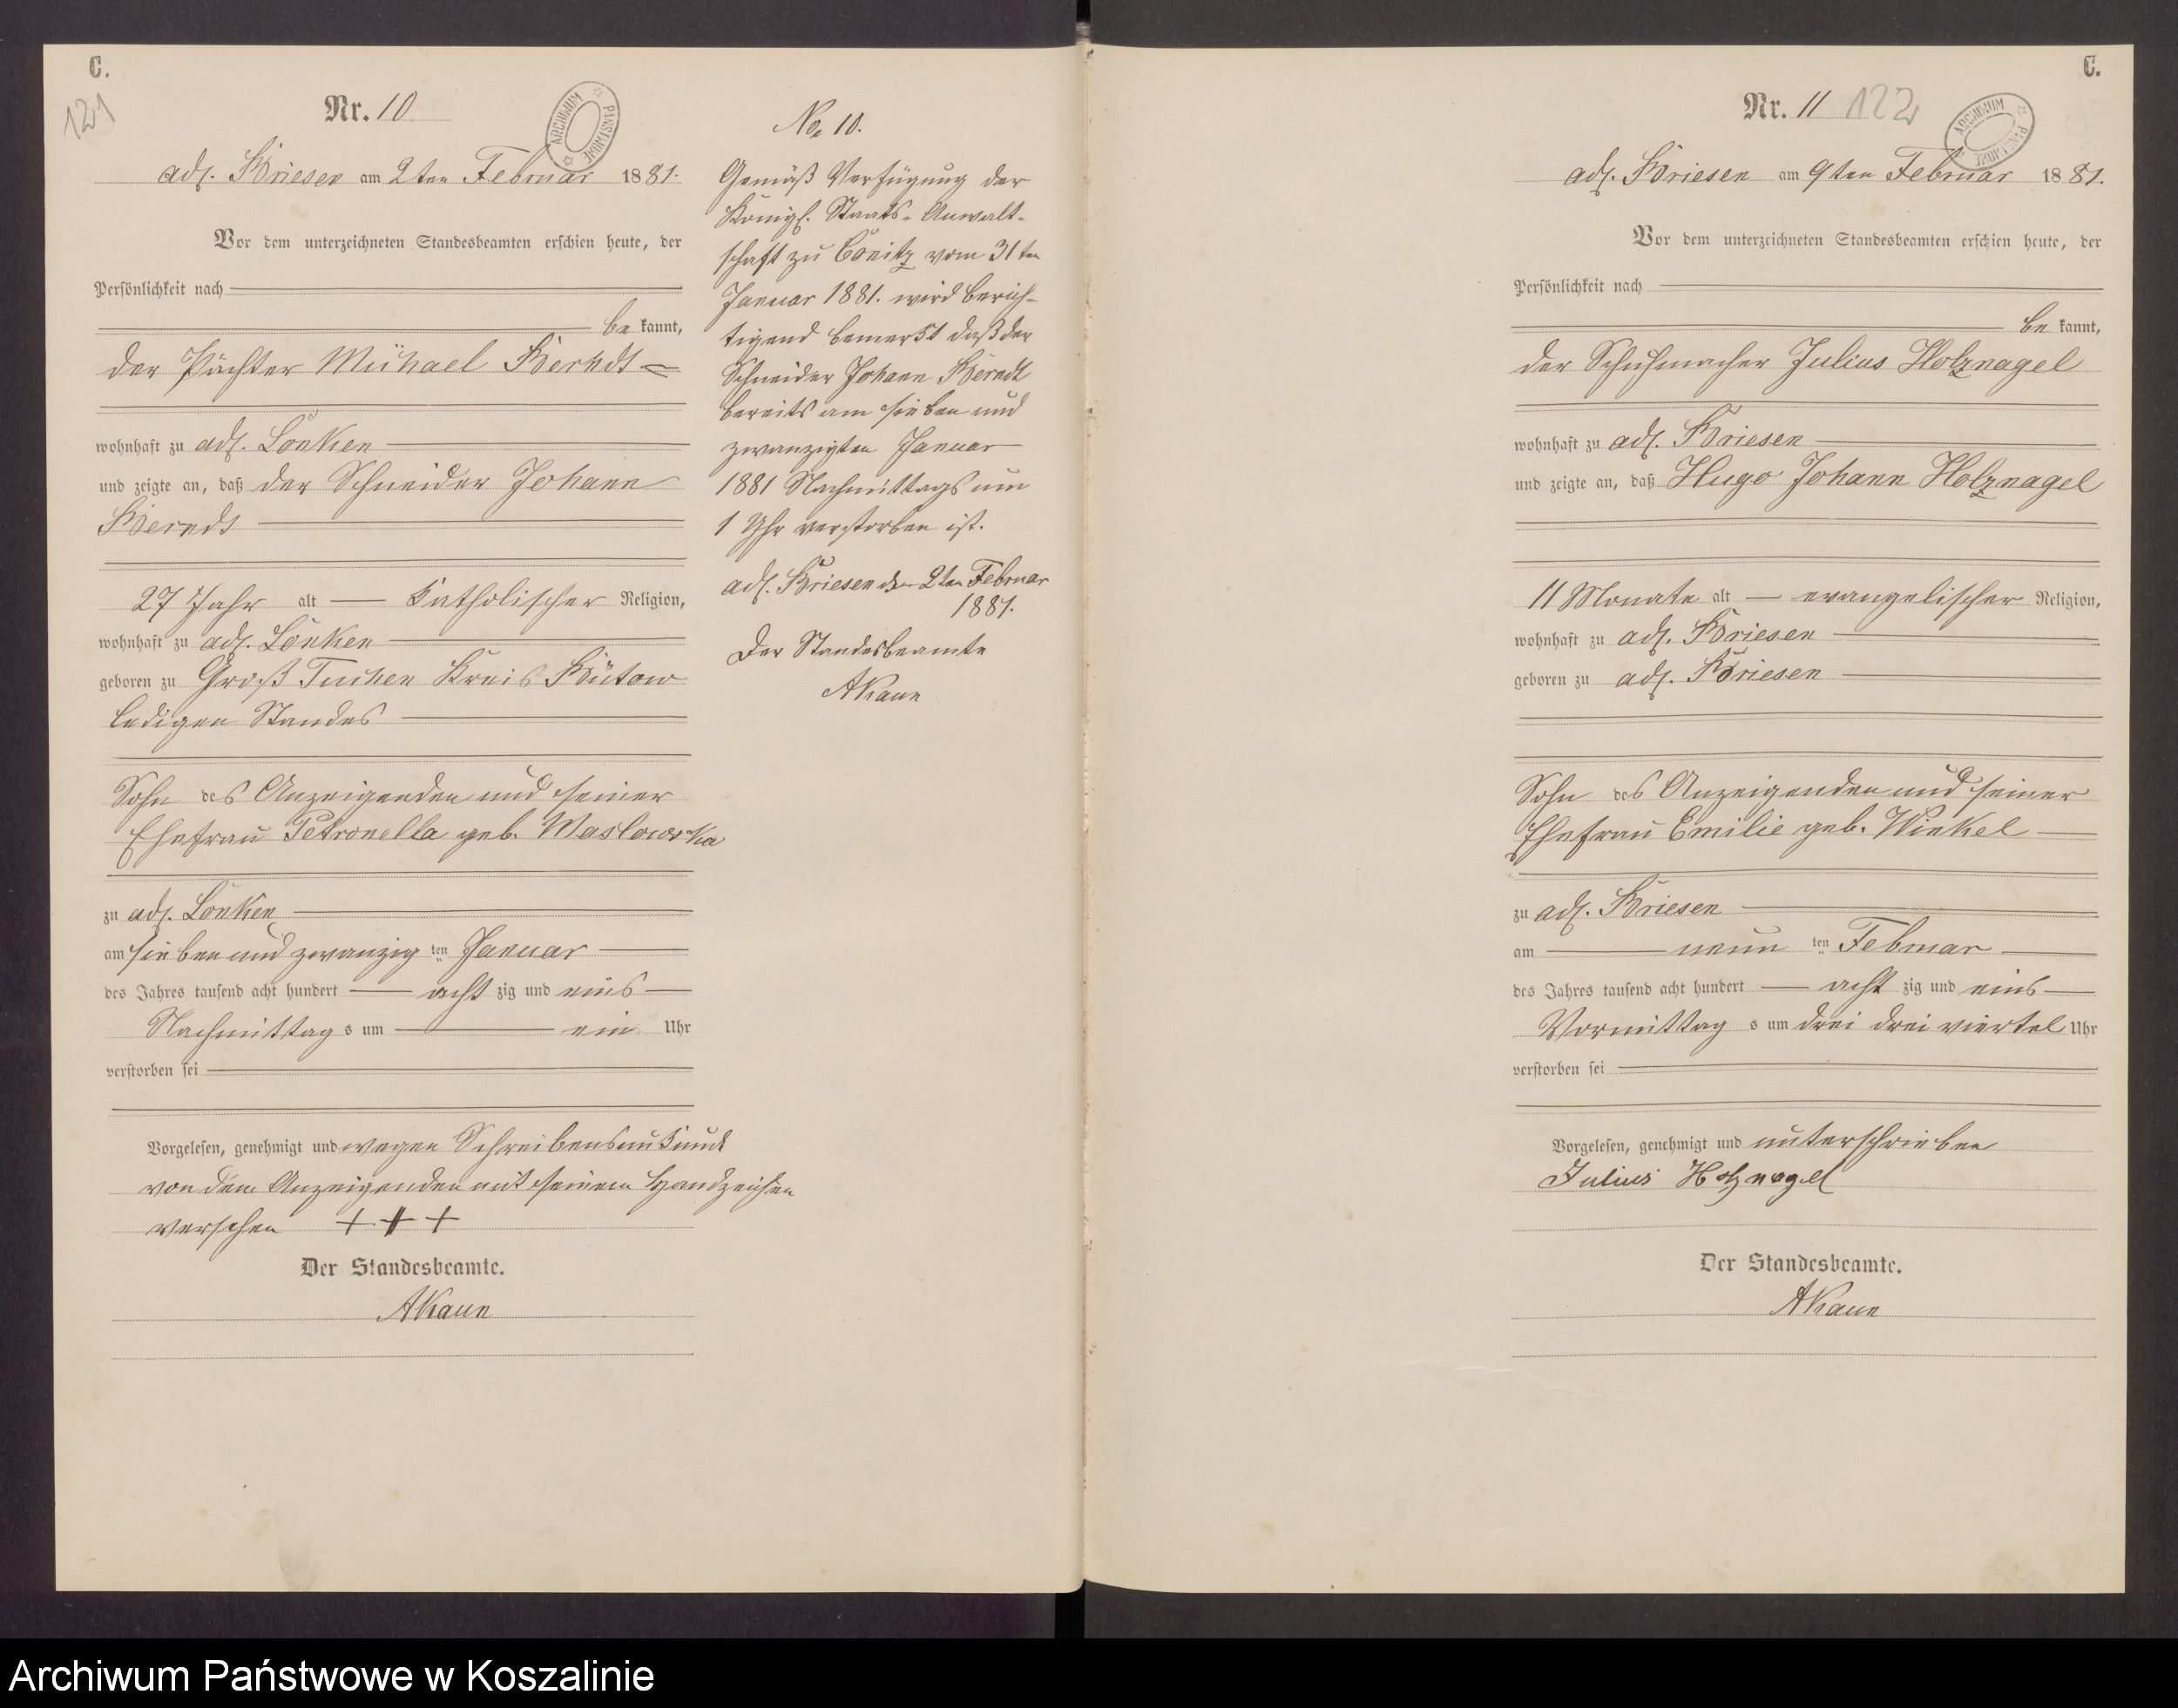 C.
121
Nr. 10
ARCHIWUM PAŃSTWOWE
adl. Briesen am 2ten Februar 1881.
Vor dem unterzeichneten Standesbeamten erschien heute, der
Persönlichkeit nach
be kannt,
der Pächter Michael Berndt
wohnhaft zu adl. Lonken
und zeigte an, daß der Schneider Johann
Berndt
27 Jahr alt katholischer Religion,
wohnhaft zu adl. Lonken
geboren zu Groß Tuchen Kreis Bütow
ledigen Standes
Sohn des Anzeigenden und seiner
Ehefrau Petronella geb. Maslowska
zu adl. Lonken
am sieben und zwanzig ten Januar
des Jahres tausend acht hundert acht zig und eins
Nachmittag s um ein Uhr
verstorben sei
Vorgelesen, genehmigt und wegen Schreibensunkunde
von dem Anzeigenden mit seinem Handzeichen
versehen +++
Der Standesbeamte.
AKaun
No 10.
Gemäß Verfügung der
Königl. Staats-Anwalt-
schaft zu Conitz vom 31ten
Januar 1881. wird berich-
tigend bemerkt daß der
Schneider Johann Berndt
bereits am sieben und
zwanzigten Januar
1881 Nachmittags um
1 Uhr verstorben ist.
adl. Briesen den 2ten Februar
1881.
Der Standesbeamte
AKaun
C.
Nr. 11 122
ARCHIWUM PAŃSTWOWE
adl. Briesen am 9ten Februar 1881.
Vor dem unterzeichneten Standesbeamten erschien heute, der
Persönlichkeit nach
be kannt,
der Schuhmacher Julius Holznagel
wohnhaft zu adl. Briesen
und zeigte an, daß Hugo Johann Holznagel
11 Monate alt evangelischer Religion,
wohnhaft zu adl. Briesen
geboren zu adl. Briesen
Sohn des Anzeigenden und seiner
Ehefrau Emilie geb. Winkel
zu adl. Briesen
am neun ten Februar
des Jahres tausend acht hundert acht zig und eins
Vormittag s um drei drei viertel Uhr
verstorben sei
Vorgelesen, genehmigt und unterschrieben
Julius Holznagel
Der Standesbeamte.
AKaun
Archiwum Państwowe w Koszalinie